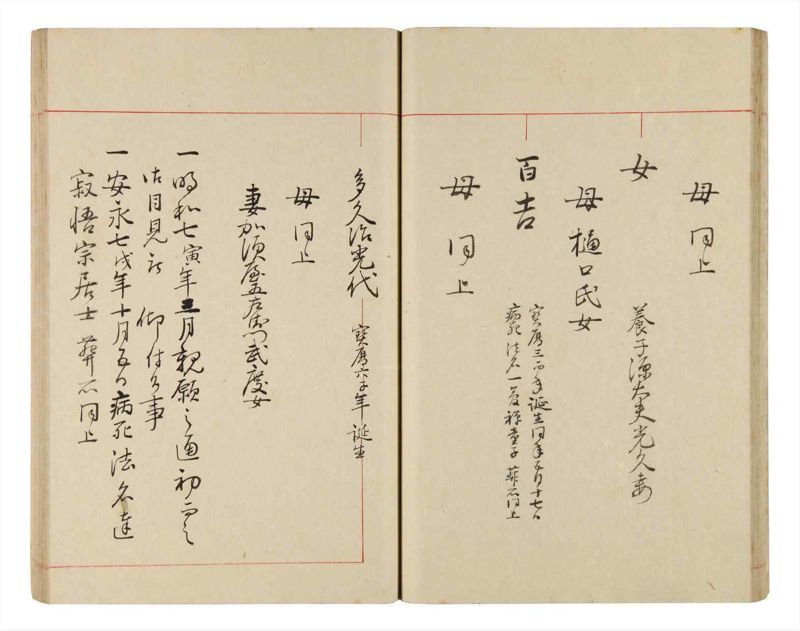 母同上
女
養子源太夫光久妻
母樋口氏女
百吉
寳暦三酉年誕生同年五月十七日
病死法名一夢禅童子 葬所同上
母同上
多久治光代
寳暦六子年誕生
母同上
妻加須屋五左衛門武度女
一 明和七寅年三月親願之通初而之
御目見被 仰付候事
一 安永七戌年十月五日病死法名達
寂悟宗居士 葬所同上